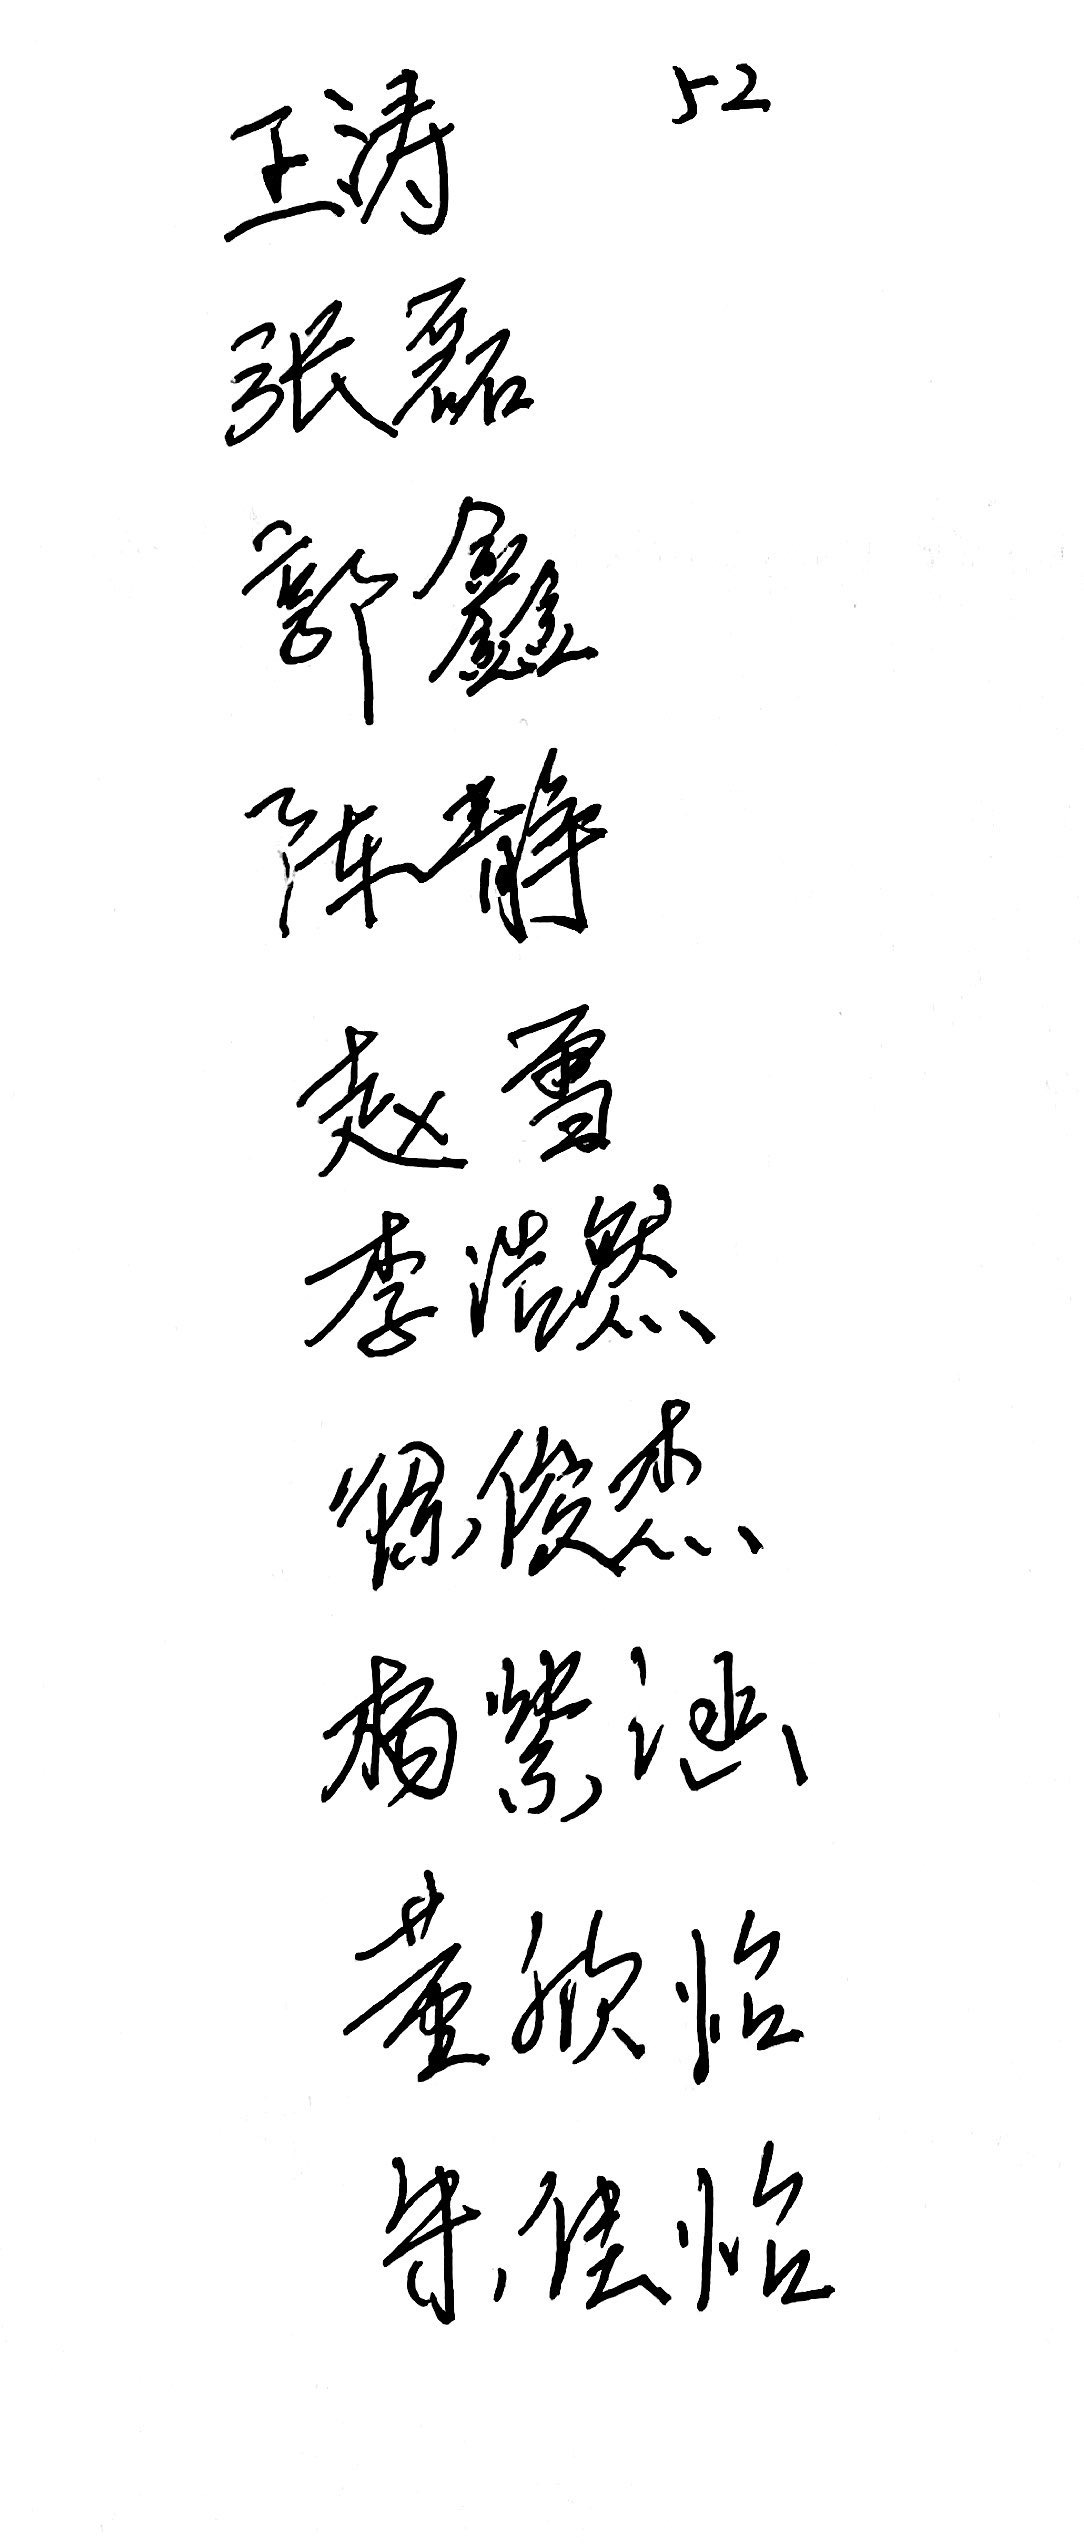 王涛 52
张磊
郭鑫
陈静
赵雪
李浩然
徐俊杰
杨紫涵
董欣怡
朱佳怡